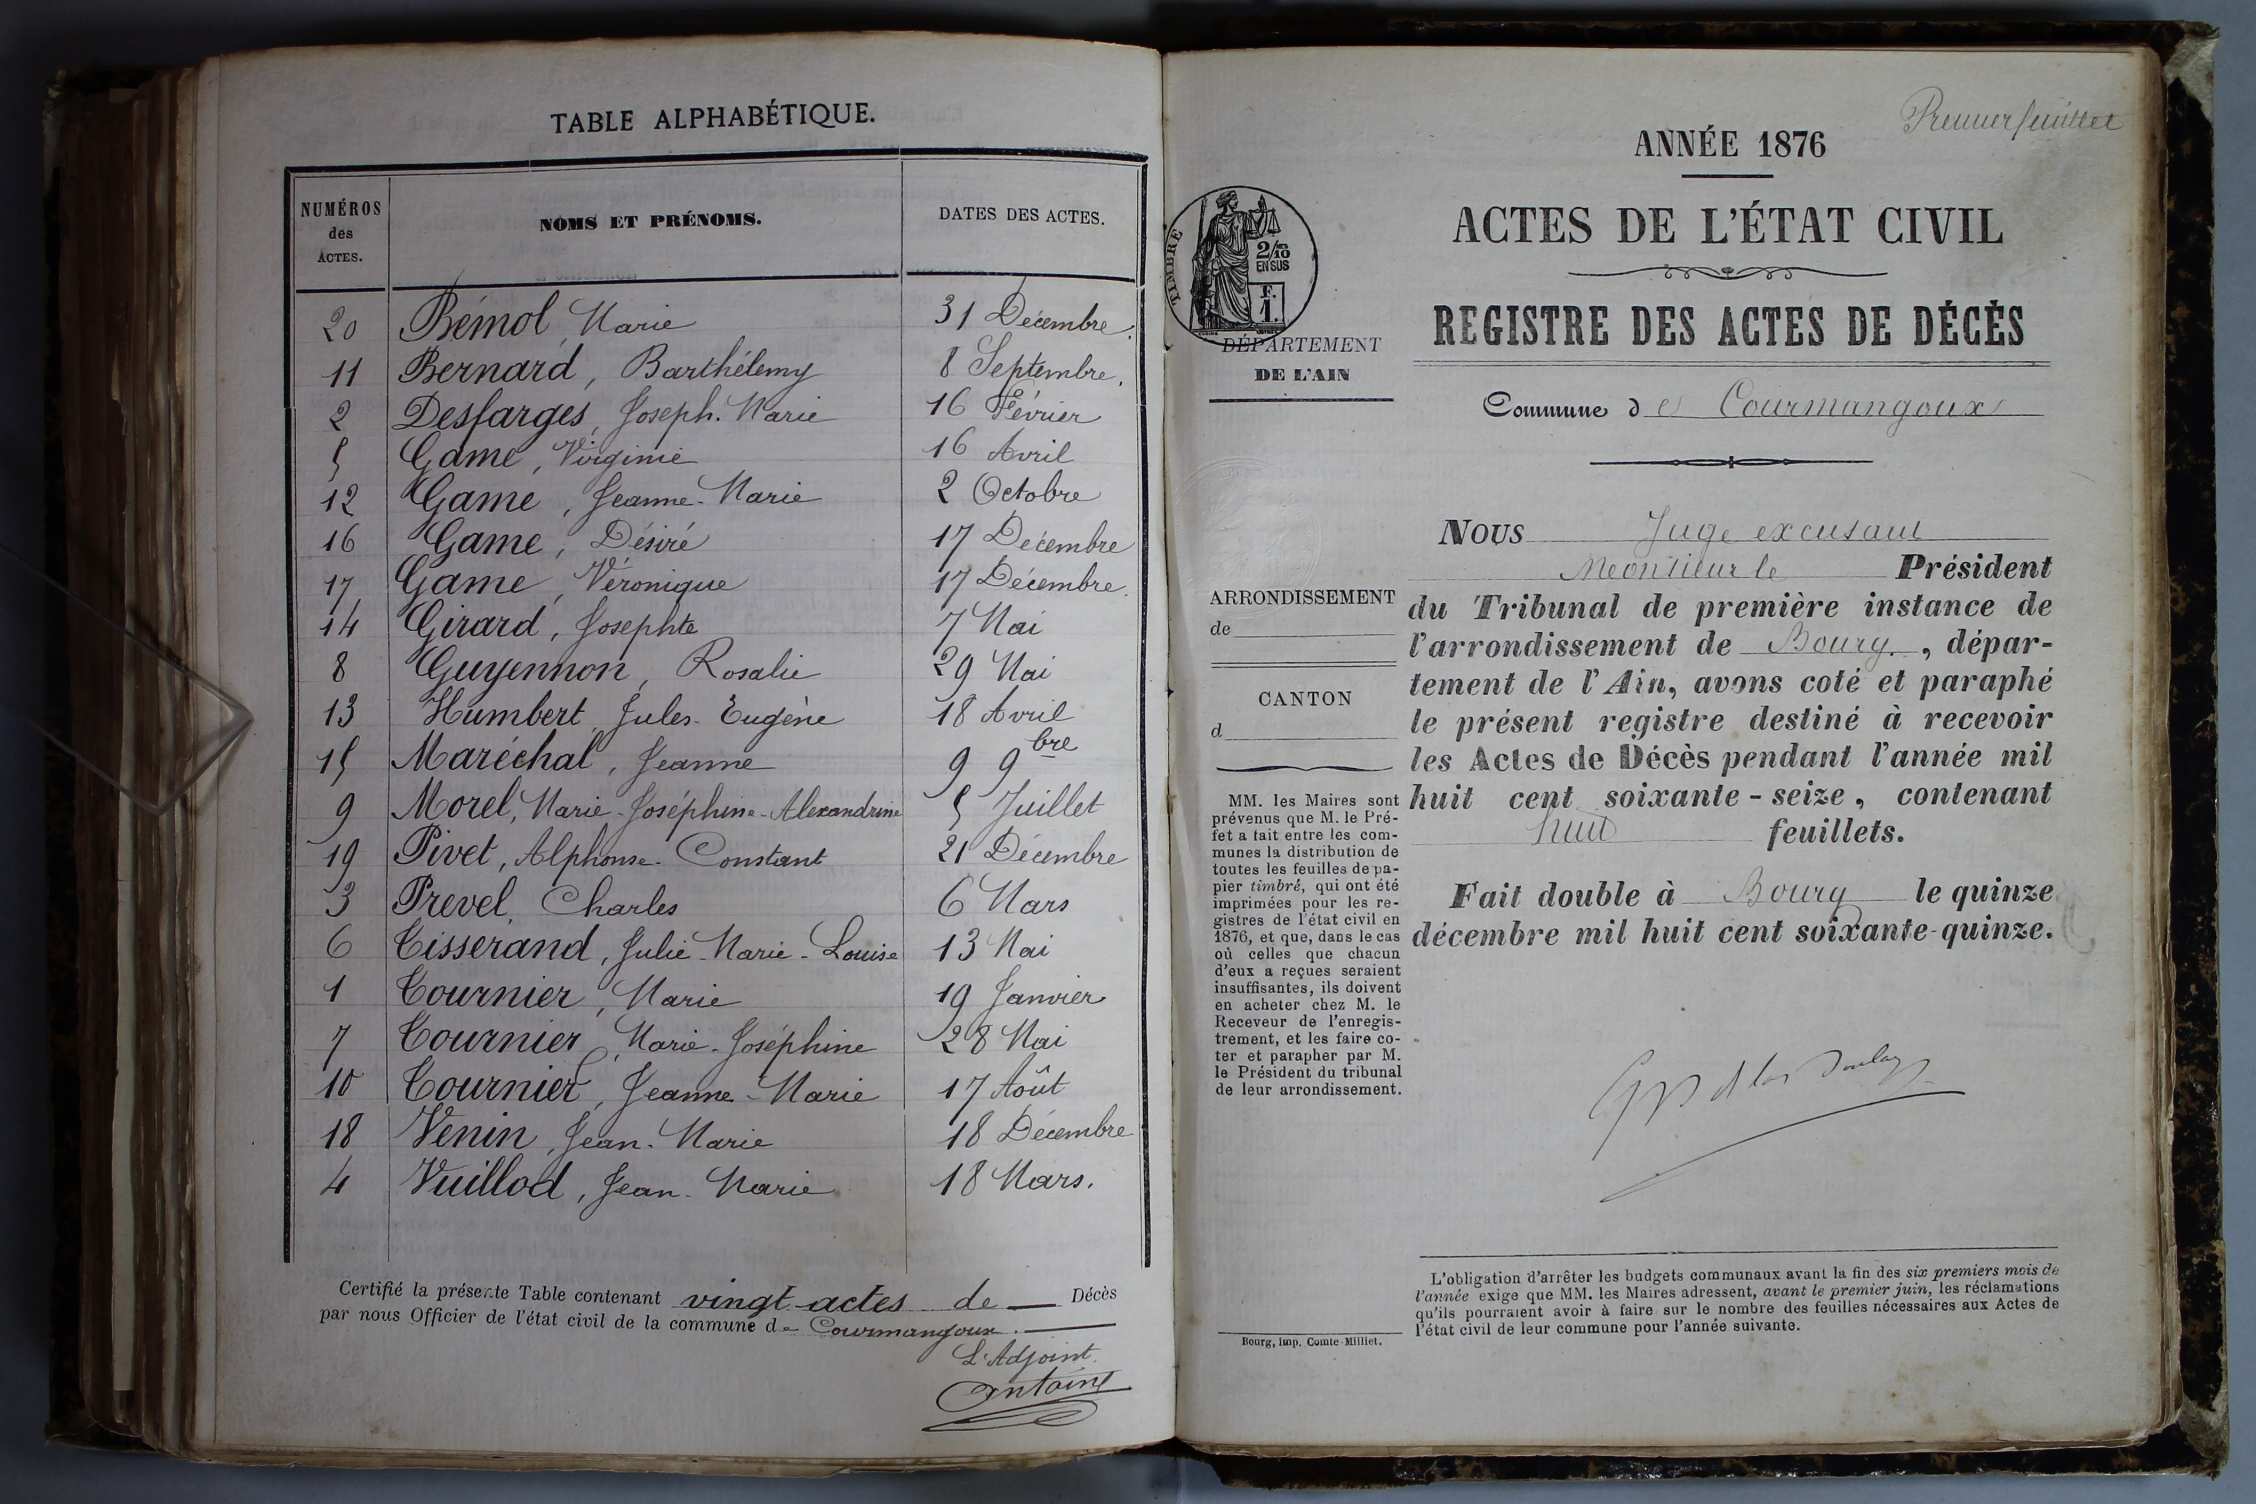 TABLE ALPHABÉTIQUE.
NUMÉROS des ACTES. NOMS ET PRÉNOMS. DATES DES ACTES.
20 Bémol, Marie 31 Décembre.
11 Bernard, Barthélemy 8 Septembre.
2 Desfarges, Joseph-Marie 16 Février
5 Game, Virginie 16 Avril
12 Game, Jeanne-Marie 2 Octobre
16 Game, Désiré 17 Décembre
17 Game, Véronique 17 Décembre.
14 Girard, Josephte 7 Mai
8 Guyennon, Rosalie 29 Mai
13 Humbert, Jules-Eugène 18 Avril
15 Maréchal, Jeanne 9 9bre
9 Morel, Marie-Joséphine-Alexandrine 5 Juillet
19 Pivet, Alphonse-Constant 21 Décembre
3 Prevel, Charles 6 Mars
6 Tisserand, Julie-Marie-Louise 13 Mai
1 Tournier, Marie 19 Janvier
7 Tournier, Marie-Joséphine 28 Mai
10 Tournier, Jeanne-Marie 17 Août
18 Venin, Jean-Marie 18 Décembre
4 Vuillod, Jean-Marie 18 Mars.
Certifié la présente Table contenant vingt-actes de Décès
par nous Officier de l'état civil de la commune de Courmangoux.
L'Adjoint.
Antoine
Premier feuillet
ANNÉE 1876
ACTES DE L'ÉTAT CIVIL
REGISTRE DES ACTES DE DÉCÈS
TIMBRE
2/10
EN SUS
F.
1.
DÉPARTEMENT
DE L'AIN
Commune de Courmangoux
ARRONDISSEMENT
de
CANTON
d
MM. les Maires sont
prévenus que M. le Pré-
fet a fait entre les com-
munes la distribution de
toutes les feuilles de pa-
pier timbré, qui ont été
imprimées pour les re-
gistres de l'état civil en
1876, et que, dans le cas
où celles que chacun
d'eux a reçues seraient
insuffisantes, ils doivent
en acheter chez M. le
Receveur de l'enregis-
trement, et les faire co-
ter et parapher par M.
le Président du tribunal
de leur arrondissement.
Bourg, imp. Comte-Milliet.
Nous Juge excusant
Monsieur le Président
du Tribunal de première instance de
l'arrondissement de Bourg., dépar-
tement de l'Ain, avons coté et paraphé
le présent registre destiné à recevoir
les Actes de Décès pendant l'année mil
huit cent soixante-seize, contenant
huit feuillets.
Fait double à Bourg le quinze
décembre mil huit cent soixante-quinze.
L'obligation d'arrêter les budgets communaux avant la fin des six premiers mois de
l'année exige que MM. les Maires adressent, avant le premier juin, les réclamations
qu'ils pourraient avoir à faire sur le nombre des feuilles nécessaires aux Actes de
l'état civil de leur commune pour l'année suivante.